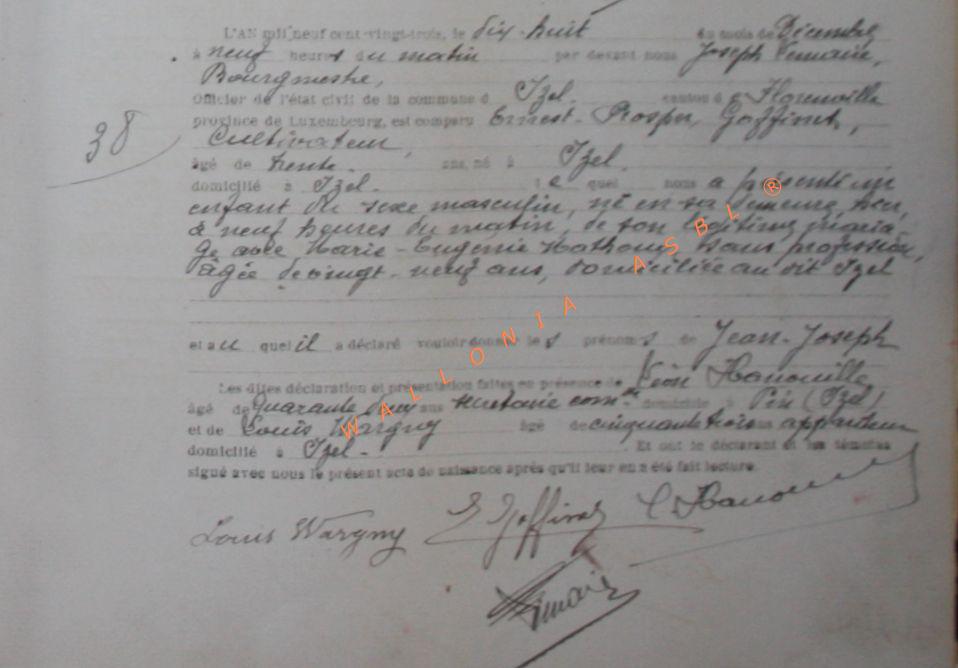 L'AN mil neuf cent-vingt-trois, le dix-huit du mois de Décembre
à neuf heures du matin par devant nous Joseph Lemaire,
Bourgmestre,
Officier de l'état civil de la commune d Izel, canton d e Florenville
province de Luxembourg, est comparu Ernest-Prosper Goffinet,
38
Cultivateur,
âgé de trente ans, né à Izel
domicilié à Izel. le quel nous a présenté un
enfant du sexe masculin, né en sa demeure, hier,
à neuf heures du matin, de son légitime maria-
ge avec Marie-Eugénie Mathous sans profession,
âgée de vingt-neuf ans, domiciliée au dit Izel
et au quel il a déclaré vouloir donner le s prénom s de Jean-Joseph
Les dites déclaration et présentation faites en présence de Léon Hanouille
âgé de quarante deux ans secrétaire com.al domicilié à Pin (Izel)
et de Louis Wargny âgé de cinquante trois ans appariteur
domicilié à Izel. Et ont le déclarant et les témoins
signé avec nous le présent acte de naissance après qu'il leur en a été fait lecture.
Louis Wargny E Goffinet L Hanouille
Lemaire
WALLONIA ASBL ®